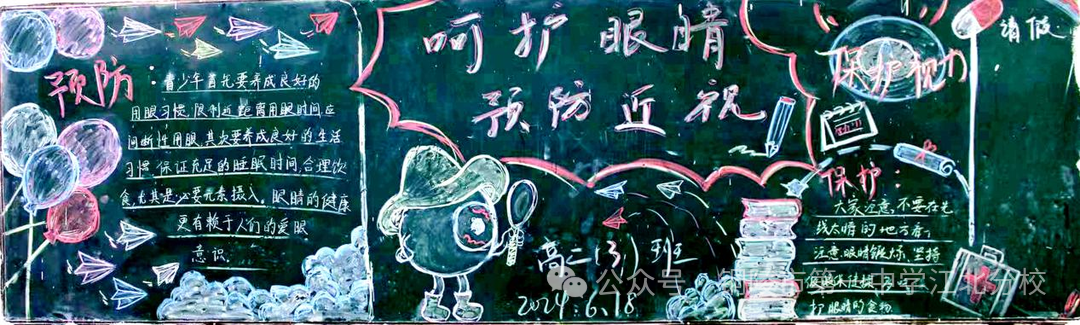 预防：青少年首先要养成良好的
用眼习惯,限制近距离用眼时间,应
间断性用眼,其次要养成良好的生活
习惯,保证充足的睡眠时间,合理饮
食,尤其是必要元素摄入。眼睛的健康
更有赖于人们的爱眼
意识.
呵护眼睛
预防近视
高二(3)班
2024.6.18
保护视力
请假
保护：
大家注意,不要在光
线太暗的地方看,
注意眼睛锻炼,坚持
护眼睛的食物
公众号
中学江北分校